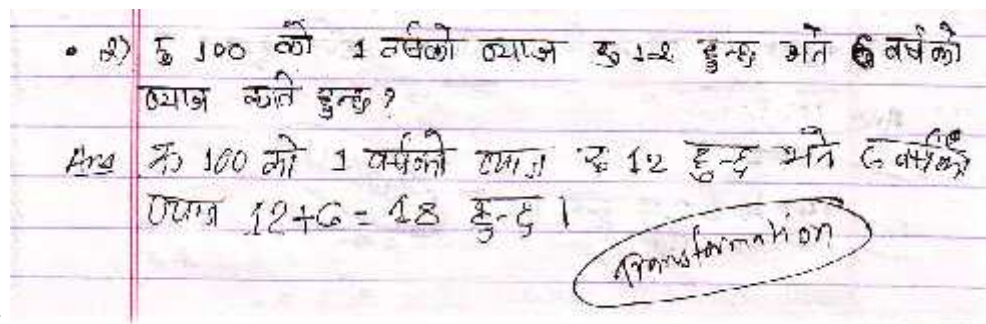 • २) रु 100 को 1 वर्षको व्याज रु 12 हुन्छ भने 6 वर्षको
व्याज कति हुन्छ ?
Ans रु 100 को 1 वर्षको व्याज रु 12 हुन्छ भने 6 वर्षको
व्याज 12+6 = 18 हुन्छ ।
Transformation